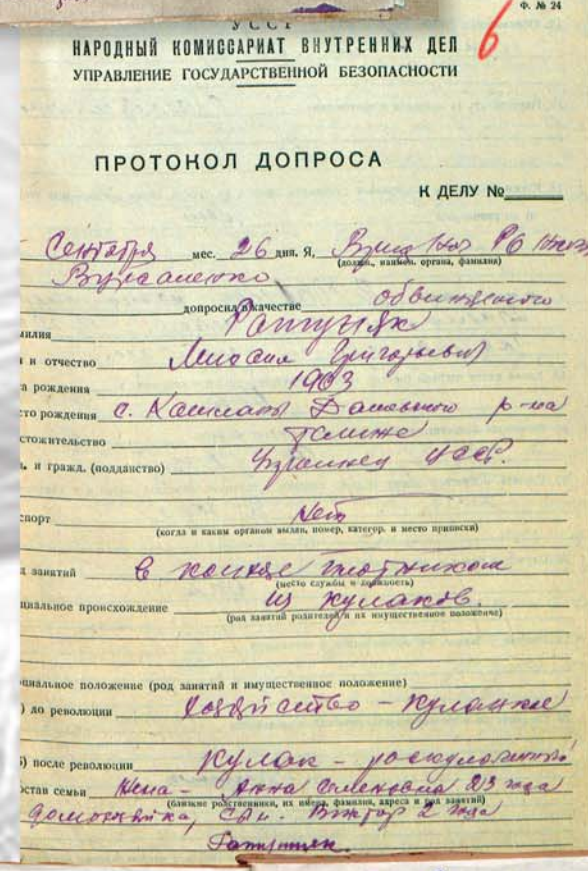 Ф. № 24
6
УССР
НАРОДНЫЙ КОМИССАРИАТ ВНУТРЕННИХ ДЕЛ
УПРАВЛЕНИЕ ГОСУДАРСТВЕННОЙ БЕЗОПАСНОСТИ
ПРОТОКОЛ ДОПРОСА
К ДЕЛУ №
Сентября мес. 26 дня. Я,
(должн., наимен. органа, фамилия)
допросил в качестве обвиняемого
милия
и отчество Григорьевич
а рождения 1903
то рождения с. р-на
стожительство там же
. и гражд. (подданство) Украинец УССР.
спорт Нет
(когда и каким органом выдан, номер, категор. и место приписки)
д занятий в колхозе плотником
(место службы и должность)
циальное происхождение из кулаков.
(род занятий родителей и их имущественное положение)
циальное положение (род занятий и имущественное положение)
) до революции хозяйство –
б) после революции Кулак – раскулаченный
став семьи Жена – Анна Семеновна 23 года
(близкие родственники, их имена, фамилия, адреса и род занятий)
домохозяйка, Сын. Виктор 2 года